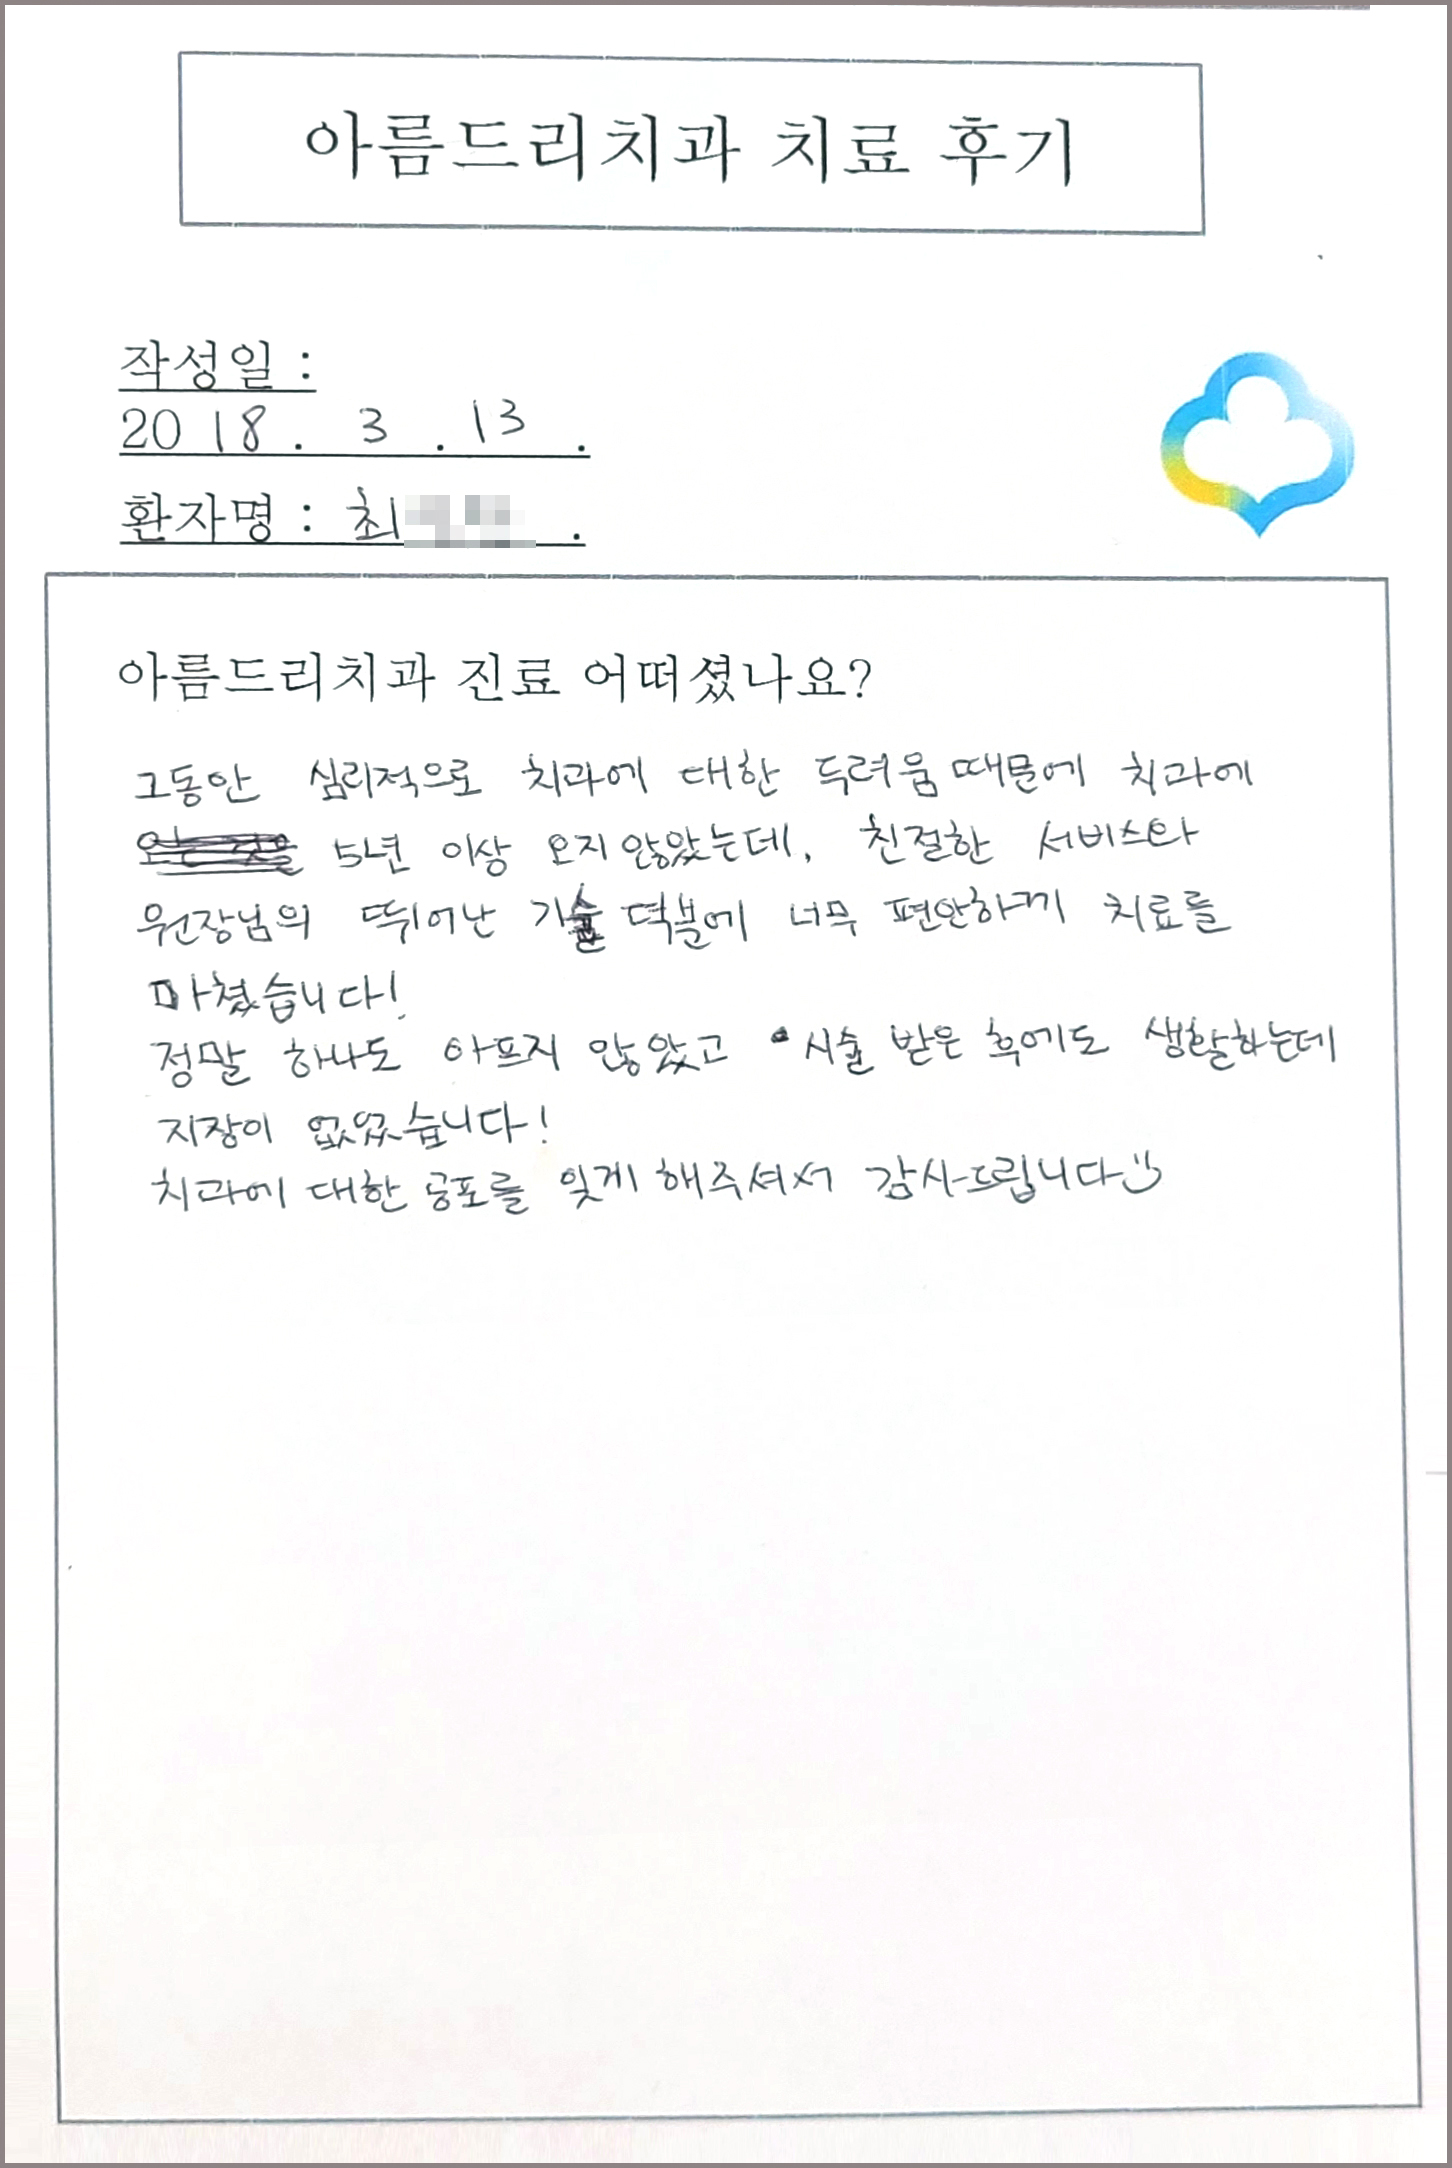 아름드리치과 치료 후기
작성일 :
2018. 3 .13 .
환자명 : 최 .
아름드리치과 진료 어떠셨나요?
그동안 심리적으로 치과에 대한 두려움 때문에 치과에
5년 이상 오지 않았는데, 친절한 서비스와
원장님의 뛰어난 기술 덕분에 너무 편안하게 치료를
마쳤습니다!
정말 하나도 아프지 않았고 시술 받은 후에도 생활하는데
지장이 없었습니다!
치과에 대한 공포를 잊게 해주셔서 감사드립니다